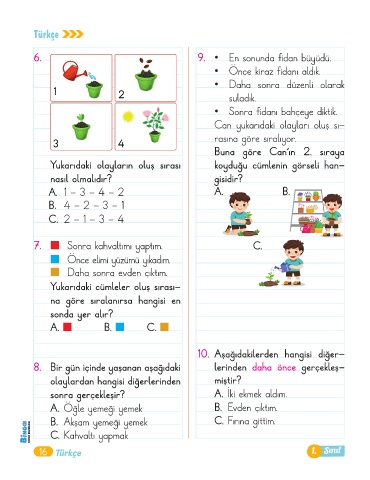 Türkçe
6.
1
2
3
4
Yukarıdaki olayların oluş sırası
nasıl olmalıdır?
A. 1 – 3 – 4 – 2
B. 4 – 2 – 3 – 1
C. 2 – 1 – 3 – 4
7. Sonra kahvaltımı yaptım.
Önce elimi yüzümü yıkadım.
Daha sonra evden çıktım.
Yukarıdaki cümleler oluş sırası-
na göre sıralanırsa hangisi en
sonda yer alır?
A. B. C.
8. Bir gün içinde yaşanan aşağıdaki
olaylardan hangisi diğerlerinden
sonra gerçekleşir?
A. Öğle yemeği yemek
B. Akşam yemeği yemek
C. Kahvaltı yapmak
9. • En sonunda fidan büyüdü.
• Önce kiraz fidanı aldık.
• Daha sonra düzenli olarak
suladık.
• Sonra fidanı bahçeye diktik.
Can yukarıdaki olayları oluş sı-
rasına göre sıralıyor.
Buna göre Can'ın 2. sıraya
koyduğu cümlenin görseli han-
gisidir?
A. B.
C.
10. Aşağıdakilerden hangisi diğer-
lerinden daha önce gerçekleş-
miştir?
A. İki ekmek aldım.
B. Evden çıktım.
C. Fırına gittim.
BİNGO!
16 Türkçe
1. Sınıf